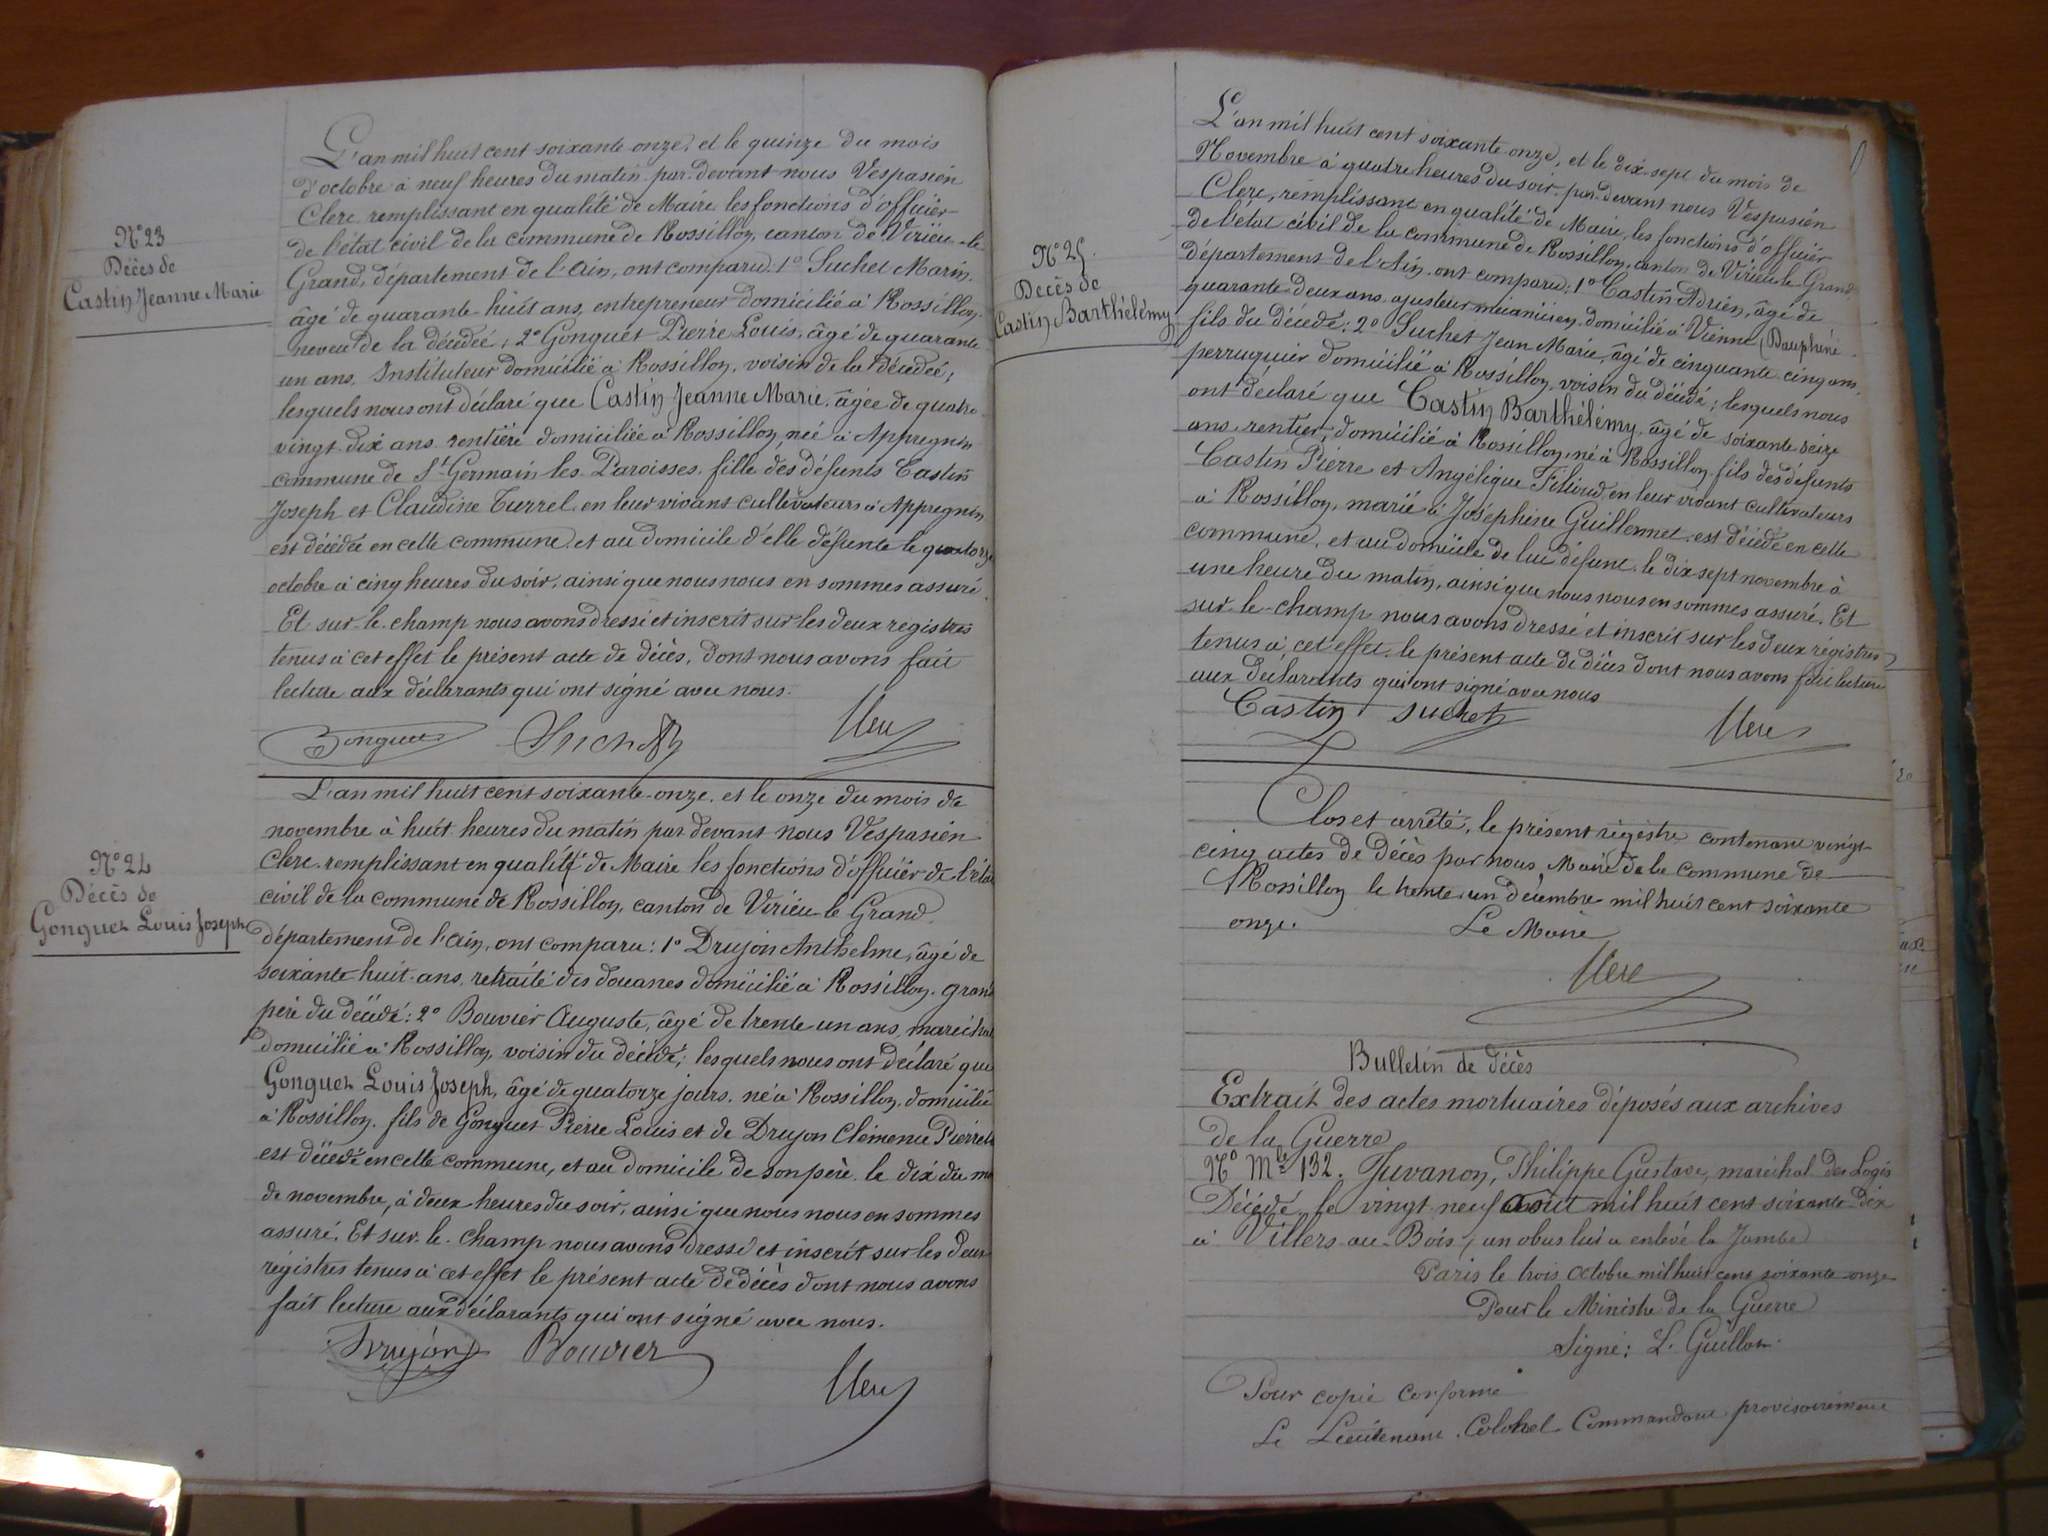 N° 23
Décès de
Castin Jeanne Marie
L'an mil huit cent soixante onze, et le quinze du mois
d'octobre à neuf heures du matin par devant nous Vespasien
Clerc remplissant en qualité de Maire les fonctions d'officier
de l'état civil de la commune de Rossillon, canton de Virieu-le
Grand, département de l'Ain, ont comparu 1° Suchet Marin
âgé de quarante-huit ans, entrepreneur domicilié à Rossillon
neveu de la décédée ; 2° Gonguet Pierre Louis, âgé de quarante
un ans, Instituteur domicilié à Rossillon, voisin de la décédée ;
lesquels nous ont déclaré que Castin Jeanne Marie, âgée de quatre
vingt dix ans rentière domiciliée à Rossillon, née à Appregnin
commune de St Germain les Paroisses, fille des défunts Castin
Joseph et Claudine Turrel en leur vivants cultivateurs à Appregnin
est décédée en cette commune, et au domicile d'elle défunte le quatorze
octobre à cinq heures du soir, ainsi que nous nous en sommes assuré.
Et sur-le-champ nous avons dressé et inscrit sur les deux registres
tenus à cet effet le présent acte de décès, dont nous avons fait
lecture aux déclarants qui ont signé avec nous.
Gonguet Suchet Clerc
N° 24
Décès de
Gonguet Louis Joseph
L'an mil huit cent soixante-onze, et le onze du mois de
novembre à huit heures du matin par devant nous Vespasien
Clerc remplissant en qualité de Maire les fonctions d'officier de l'état
civil de la commune de Rossillon, canton de Virieu le Grand
département de l'Ain, ont comparu : 1° Drujon Anthelme, âgé de
soixante huit ans, retraité des douanes domicilié à Rossillon, grand
père du décédé : 2° Bouvier Auguste, âgé de trente un ans, maréchal
domicilié à Rossillon, voisin du décédé ; lesquels nous ont déclaré que
Gonguet Louis Joseph, âgé de quatorze jours, né à Rossillon, domicilié
à Rossillon, fils de Gonguet Pierre Louis et de Drujon Clémence Pierrette
est décédé en cette commune, et au domicile de son père le dix du mois
de novembre, à deux heures du soir, ainsi que nous nous en sommes
assuré. Et sur-le-champ nous avons dressé et inscrit sur les deux
régistres tenus à cet effet le présent acte de décès dont nous avons
fait lecture aux déclarants qui ont signé avec nous.
Drujon Bouvier
Clerc
N° 25.
Décès de
Castin Barthélémy
L'an mil huit cent soixante-onze, et le dix-sept du mois de
Novembre à quatre heures du soir, par-devant nous Vespasien
Clerc, remplissant en qualité de Maire, les fonctions d'officier
de l'état civil de la commune de Rossillon, canton de Virieu-le-Grand
département de l'Ain, ont comparu ; 1° Castin Adrien, âgé de
quarante-deux ans, ajusteur mécanicien domicilié à Vienne (Dauphiné
fils du décédé ; 2° Suchet Jean Marie, âgé de cinquante-cinq ans,
perruquier domicilié à Rossillon, voisin du décédé ; lesquels nous
ont déclaré que Castin Barthélémy, âgé de soixante seize
ans, rentier, domicilié à Rossillon, né à Rossillon fils des défunts
Castin Pierre et Angélique Filliod en leur vivant cultivateurs
à Rossillon, marié à Joséphine Guillermet, est décédé en cette
commune, et au domicile de lui défunt, le dix sept novembre à
une heure du matin, ainsi que nous nous en sommes assuré. Et
sur-le-champ nous avons dressé et inscrit sur les deux régistres
tenus à cet effet le présent acte de décès dont nous avons fait lecture
aux déclarants qui ont signé avec nous
Castin Suchet Clerc
Clos et arrêté, le présent régistre contenant vingt-
cinq actes de Décès par nous, Maire de la commune de
Rossillon le trente-un décembre mil huit cent soixante
onze. Le Maire
Clerc
Bulletin de décès
Extrait des actes mortuaires déposés aux archives
de la Guerre
N° Mle 132. Juvanon, Philippe Gustave, maréchal des Logis
Décédé le vingt neuf août mil huit cent soixante dix
à Villers-au-Bois (un obus lui a enlevé la Jambe)
Paris le trois octobre mil huit cent soixante-onze
Pour le Ministre de la Guerre
Signé : L. Guillon
Pour copie conforme
Le Lieutenant-Colonel Commandant provisoirement